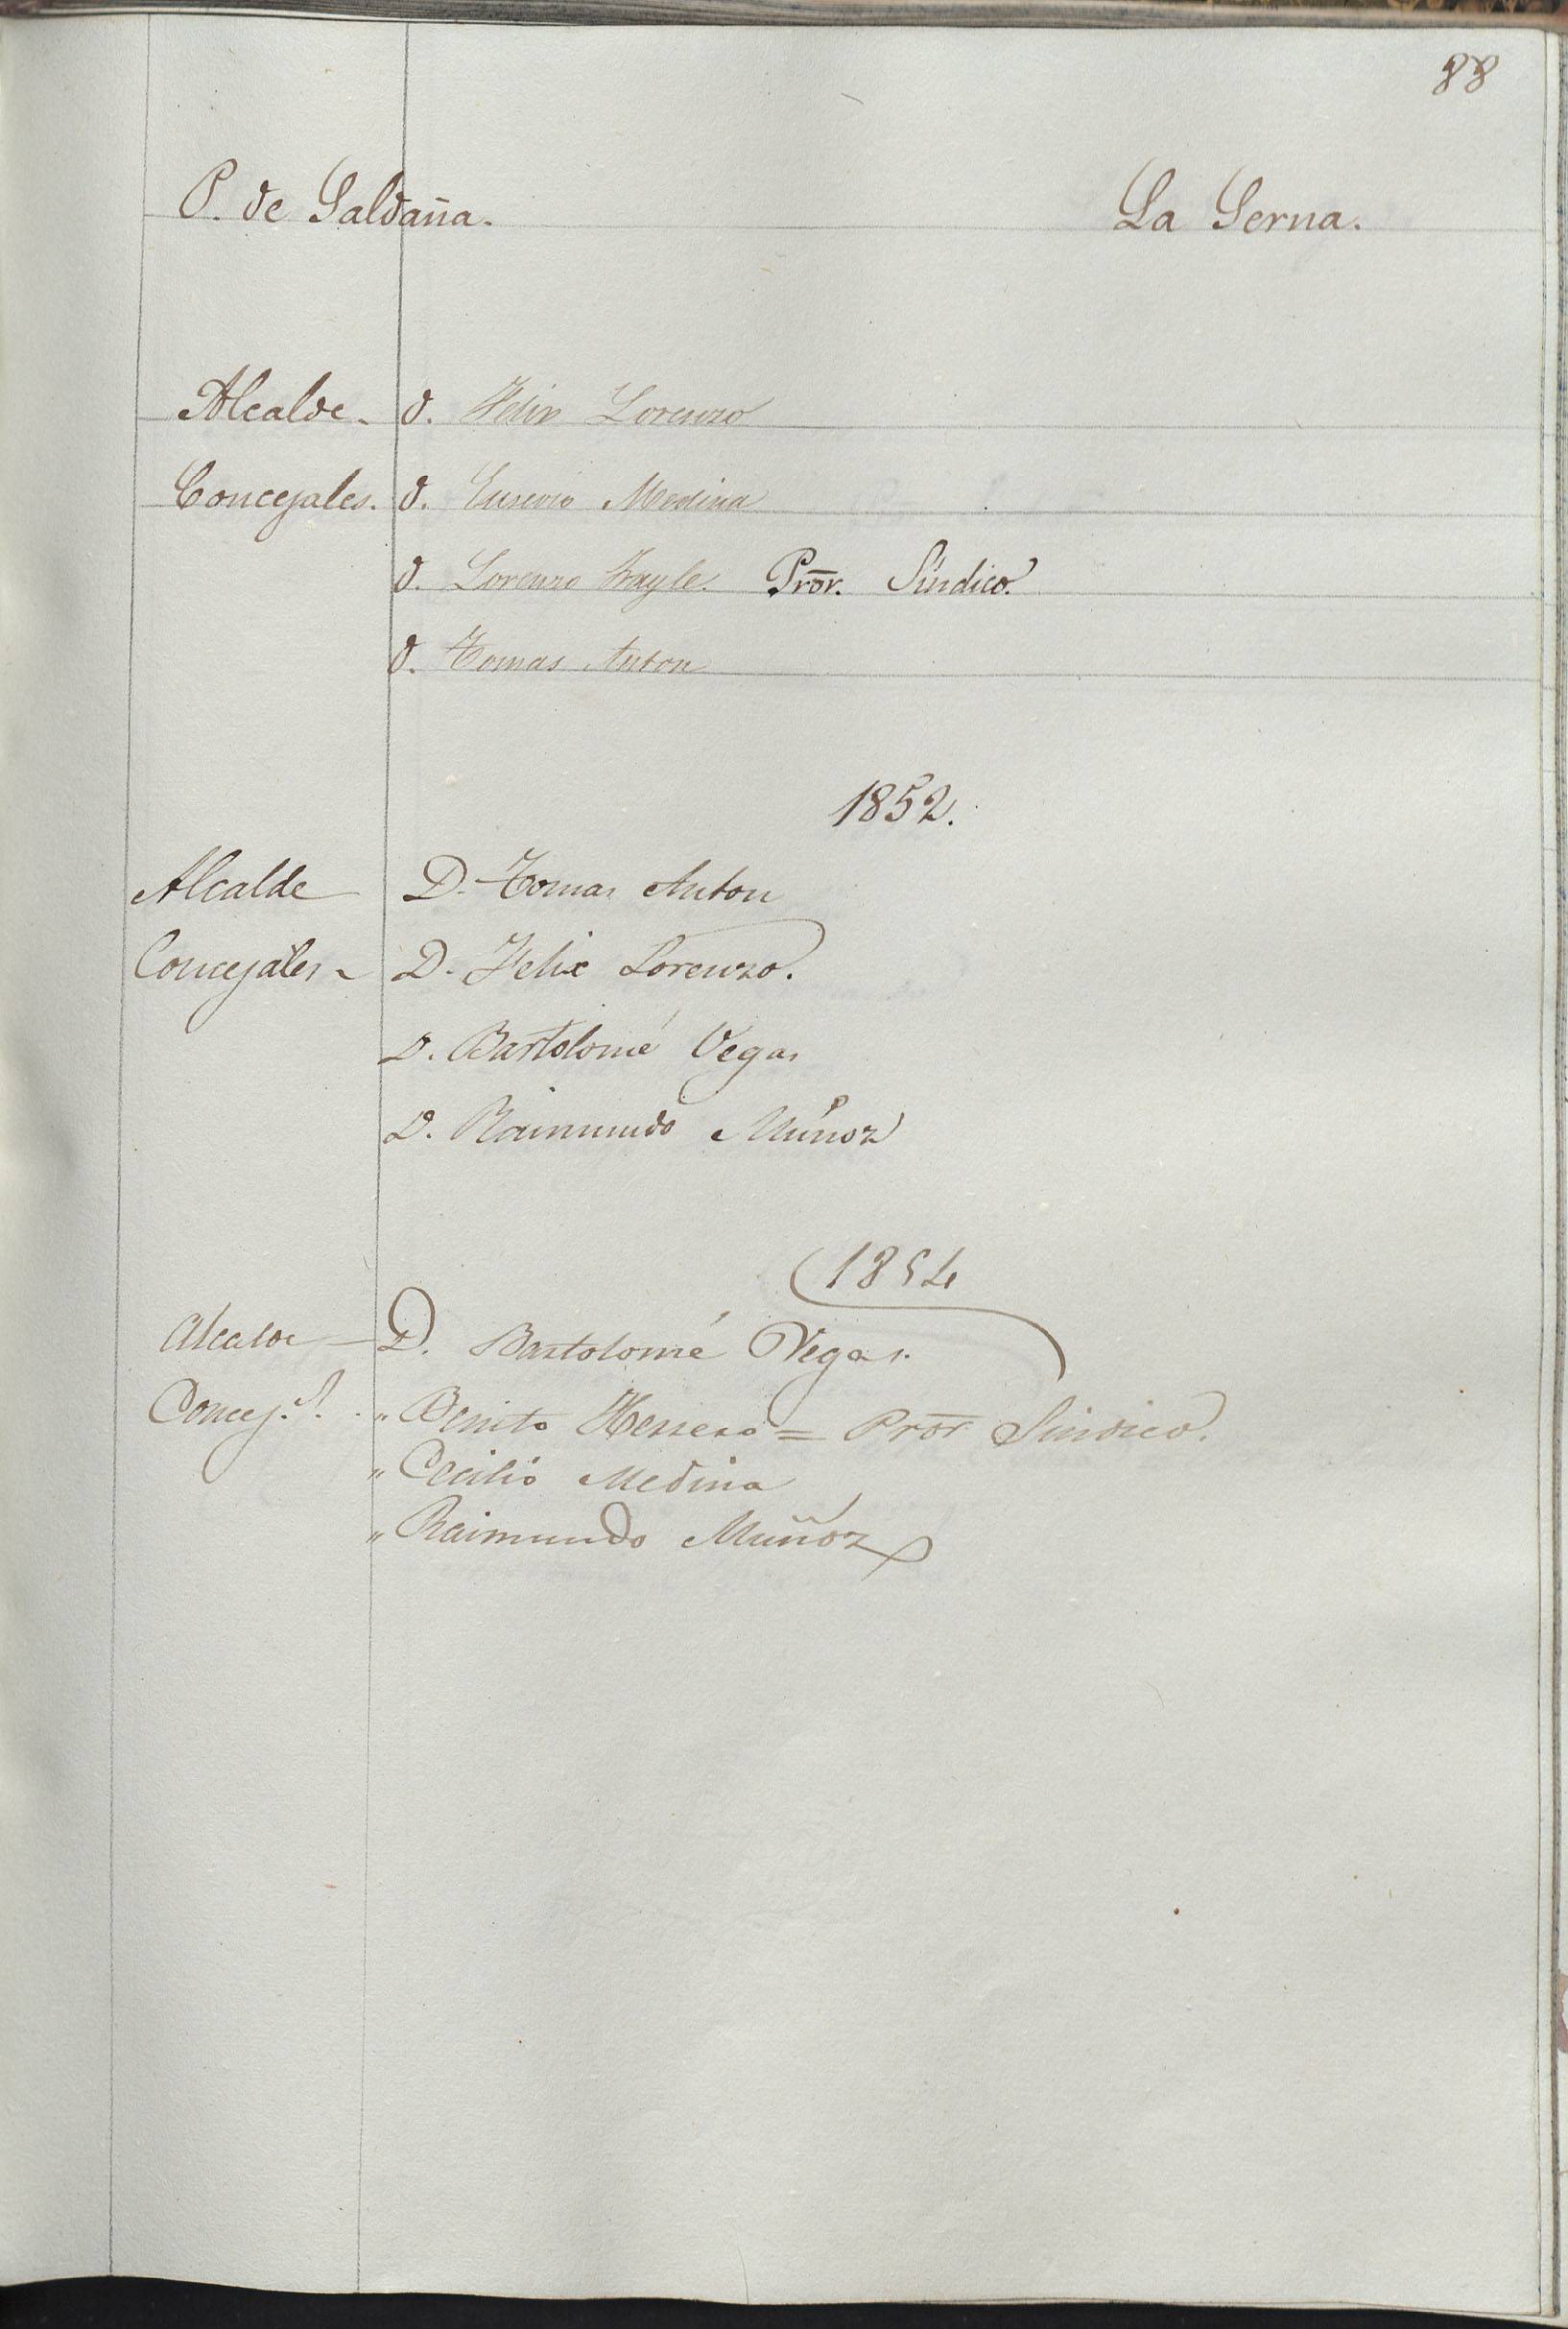 88
P. de Saldaña. La Serna.
Alcalde - D. Felix Lorenzo
Concejales. D. Eusevio Medina
D. Lorenzo Frayle. Pror. Síndico.
D. Tomas Anton
1852.
Alcalde D. Tomas Anton
Concejales - D. Felix Lorenzo.
D. Bartolomé Vegas
D. Raimundo Muñoz
1854
Alcalde — D. Bartolomé Vegas.
Concej.s. " Benito Herrero = Pror Sindico.
" Cecilio Medina
" Raimundo Muñoz